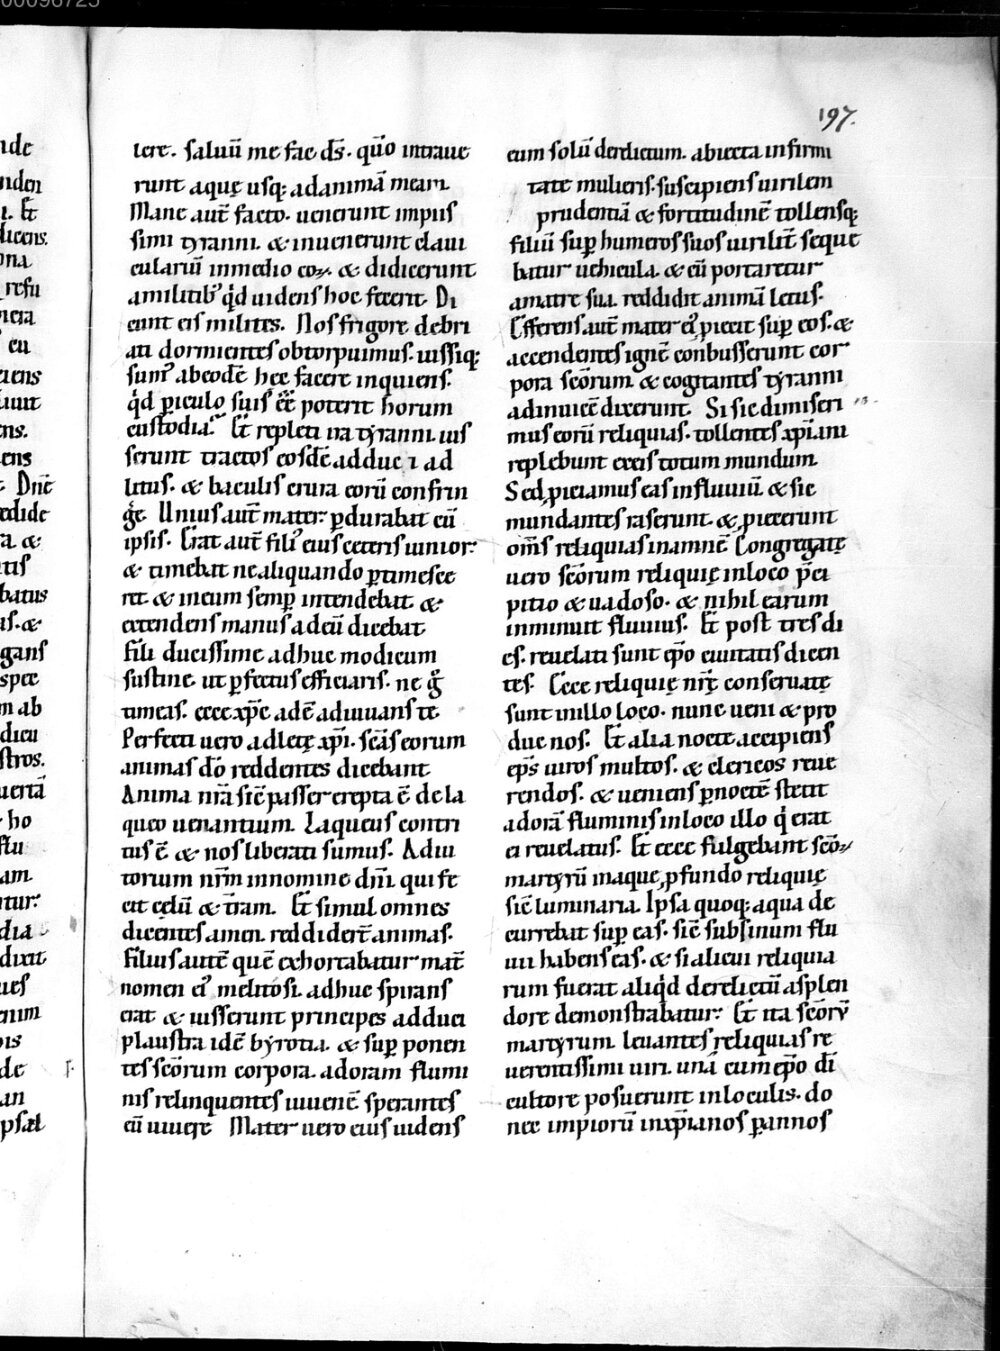 197.
lere. saluū me fac ds̄. qm̄o intraue
runt aquę usq; ad animā meam.
Mane aut̄ facto. uenerunt impiis
simi tyranni. & inuenerunt claui
culariū in medio eoꝝ. & didicerunt
a militib; qd̄ uidens hoc fecerit. Di
cunt eis milites. Nos frigore debri
ati dormientes obtorpuimus. iussiq;
sumꝰ ab eodē hęc facere inquiens.
qd̄ ꝑiculo suis eē poterit horum
custodia. Et repleti ira tyranni. ius
serunt tractos eosdē adduci ad
litus. & baculis crura eorū confrin
gē. Unius aut̄ mater ꝑdurabat cū
ipsis. Erat aut̄ filiꝰ eius ceteris iunior.
& timebat ne aliquando ꝑtimesce
ret. & in eum semꝑ intendebat. &
extendens manus ad eū dicebat.
Fili dulcissime adhuc modicum
sustine. ut ꝑfectus efficiaris. ne g̊
timeas. ecce xp̄c adē adiuuans te.
Perfecti uero adletę xp̄i. scās eorum
animas dō reddentes dicebant.
Anima nr̄a sic̄ passer erepta ē de la
queo uenantium. Laqueus contri
tus ē & nos liberati sumus. Adiu
torium nr̄m in nomine dn̄i. qui fe
cit cęlū & t̄ram. Et simul omnes
dicentes amen. reddider̄t animas.
Filius autē quē exhortabatur mat̄
nomen eiꝰ melitosi. adhuc spirans
erat & iusserunt principes adduci
plaustra idē byrota. & suꝑ ponen
tes scōrum corpora. ad oram flumi
nis relinquentes iuuenē sperantes
eū uiuere. Mater uero eius uidens
eum solū derelictum. abiecta infirmi
tate mulieris. suscipiens uirilem
prudentiā & fortitudinē tollensq;
filiū suꝑ humeros suos uirilit̄ seque
batur uehicula. & cū portaretur
a matre sua. reddidit animā letus.
Efferens aut̄ mater eiꝰ ꝓiecit suꝑ eos. &
accendentes ignē conbusserunt cor
pora scōrum. & cogitantes tyranni
adinuicē dixerunt. Si sic dimiseri
mus eorū reliquias. tollentes xp̄iani
replebunt ex eis totum mundum.
Sed ꝓiciamus eas in fluuiū. & sic
mundantes raserunt. & ꝓiecerunt
om̄s reliquias in amnē. Congregatę
uero scōrum reliquię in loco p̄ci
pitio & uadoso. & nihil earum
inminuit fluuius. Et post tres di
es. reuelati sunt ep̄o ciuitatis dicen
tes. Ecce reliquię nr̄ę conseruatę
sunt in illo loco. nunc ueni & pro
duc nos. Et alia nocte accipiens
ep̄s uiros multos. & clericos reue
rendos. & ueniens ꝑ noctē stetit
ad orā fluminis in loco illo q̊ erat
ei reuelatus. Et ecce fulgebant scōꝝ
martyrū in aque ꝓfundo reliquię
sic̄ luminaria. Ipsa quoq; aqua de
currebat suꝑ eas. sic̄ sub sinum flu
uii habens eas. & si alicui reliquia
rum fuerat aliqd̄ derelictū a splen
dore demonstrabatur. Et ita scōrū
martyrum leuantes reliquias re
uerentissimi uiri. unā cum ep̄o dī
cultore posuerunt in loculis. do
nec impiorū in xp̄ianos ꝑannos